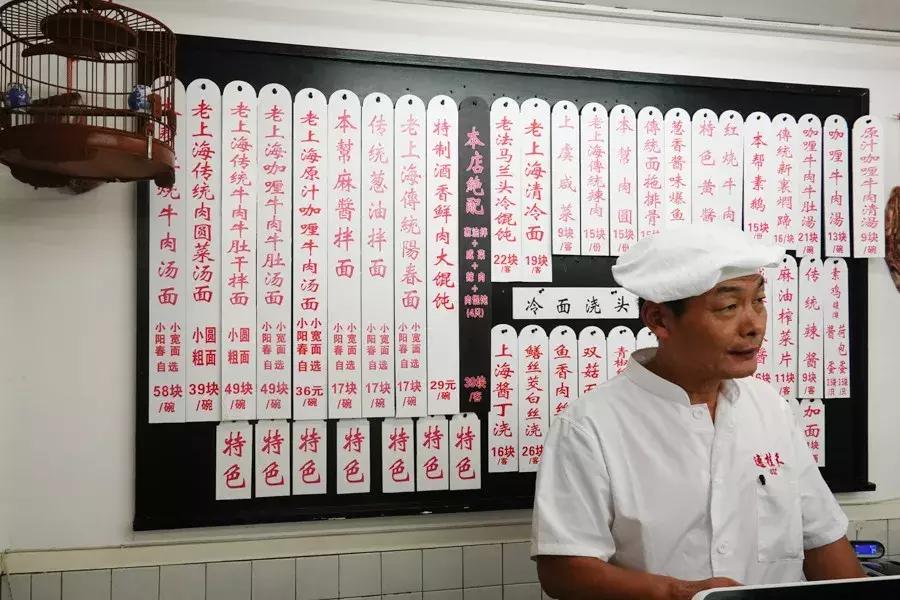 烧牛肉汤面
小阳春
小宽面
自选
58块/碗
老上海传统肉圆菜汤面
小圆
粗面
39块/碗
老上海传统牛肉牛肚干拌面
小圆
粗面
49块/碗
老上海咖喱牛肉牛肚汤面
小阳春
小宽面
自选
49块/碗
老上海原汁咖喱牛肉汤面
小阳春
小宽面
自选
36元/碗
本幫麻醬拌面
小阳春
小宽面
自选
17块/碗
传统葱油拌面
小阳春
小宽面
自选
17块/碗
老上海傳統陽春面
小阳春
小宽面
自选
17块/碗
特制酒香鲜肉大馄饨
29元/碗
本店绝配
葱油拌
+
咸菜
+
辣肉
+
肉馄饨
(4只)
38块/客
老法马兰头冷馄饨
22块/客
老上海清冷面
19块/客
上虞咸菜
9块/份
老上海傳統辣肉
15块/份
本幫肉圆
15块/份
傳統面拖排骨
葱香醬味爆鱼
特色黄醬
红烧牛肉
本帮素鸡
15块/份
傳統新裹焖蹄
16/块
咖喱牛肉牛肚汤
21块/碗
咖喱牛肉汤
13块/碗
原汁咖喱牛肉清汤
9块/碗
冷面浇头
上海醬丁浇
16块/客
鳝丝茭白丝
26块/客
鱼香肉
双菇
青椒
麻油榨菜片
11块/客
传统辣醬
9块/客
素鸡
荷包蛋
加面
特色
特色
特色
特色
特色
特色
特色